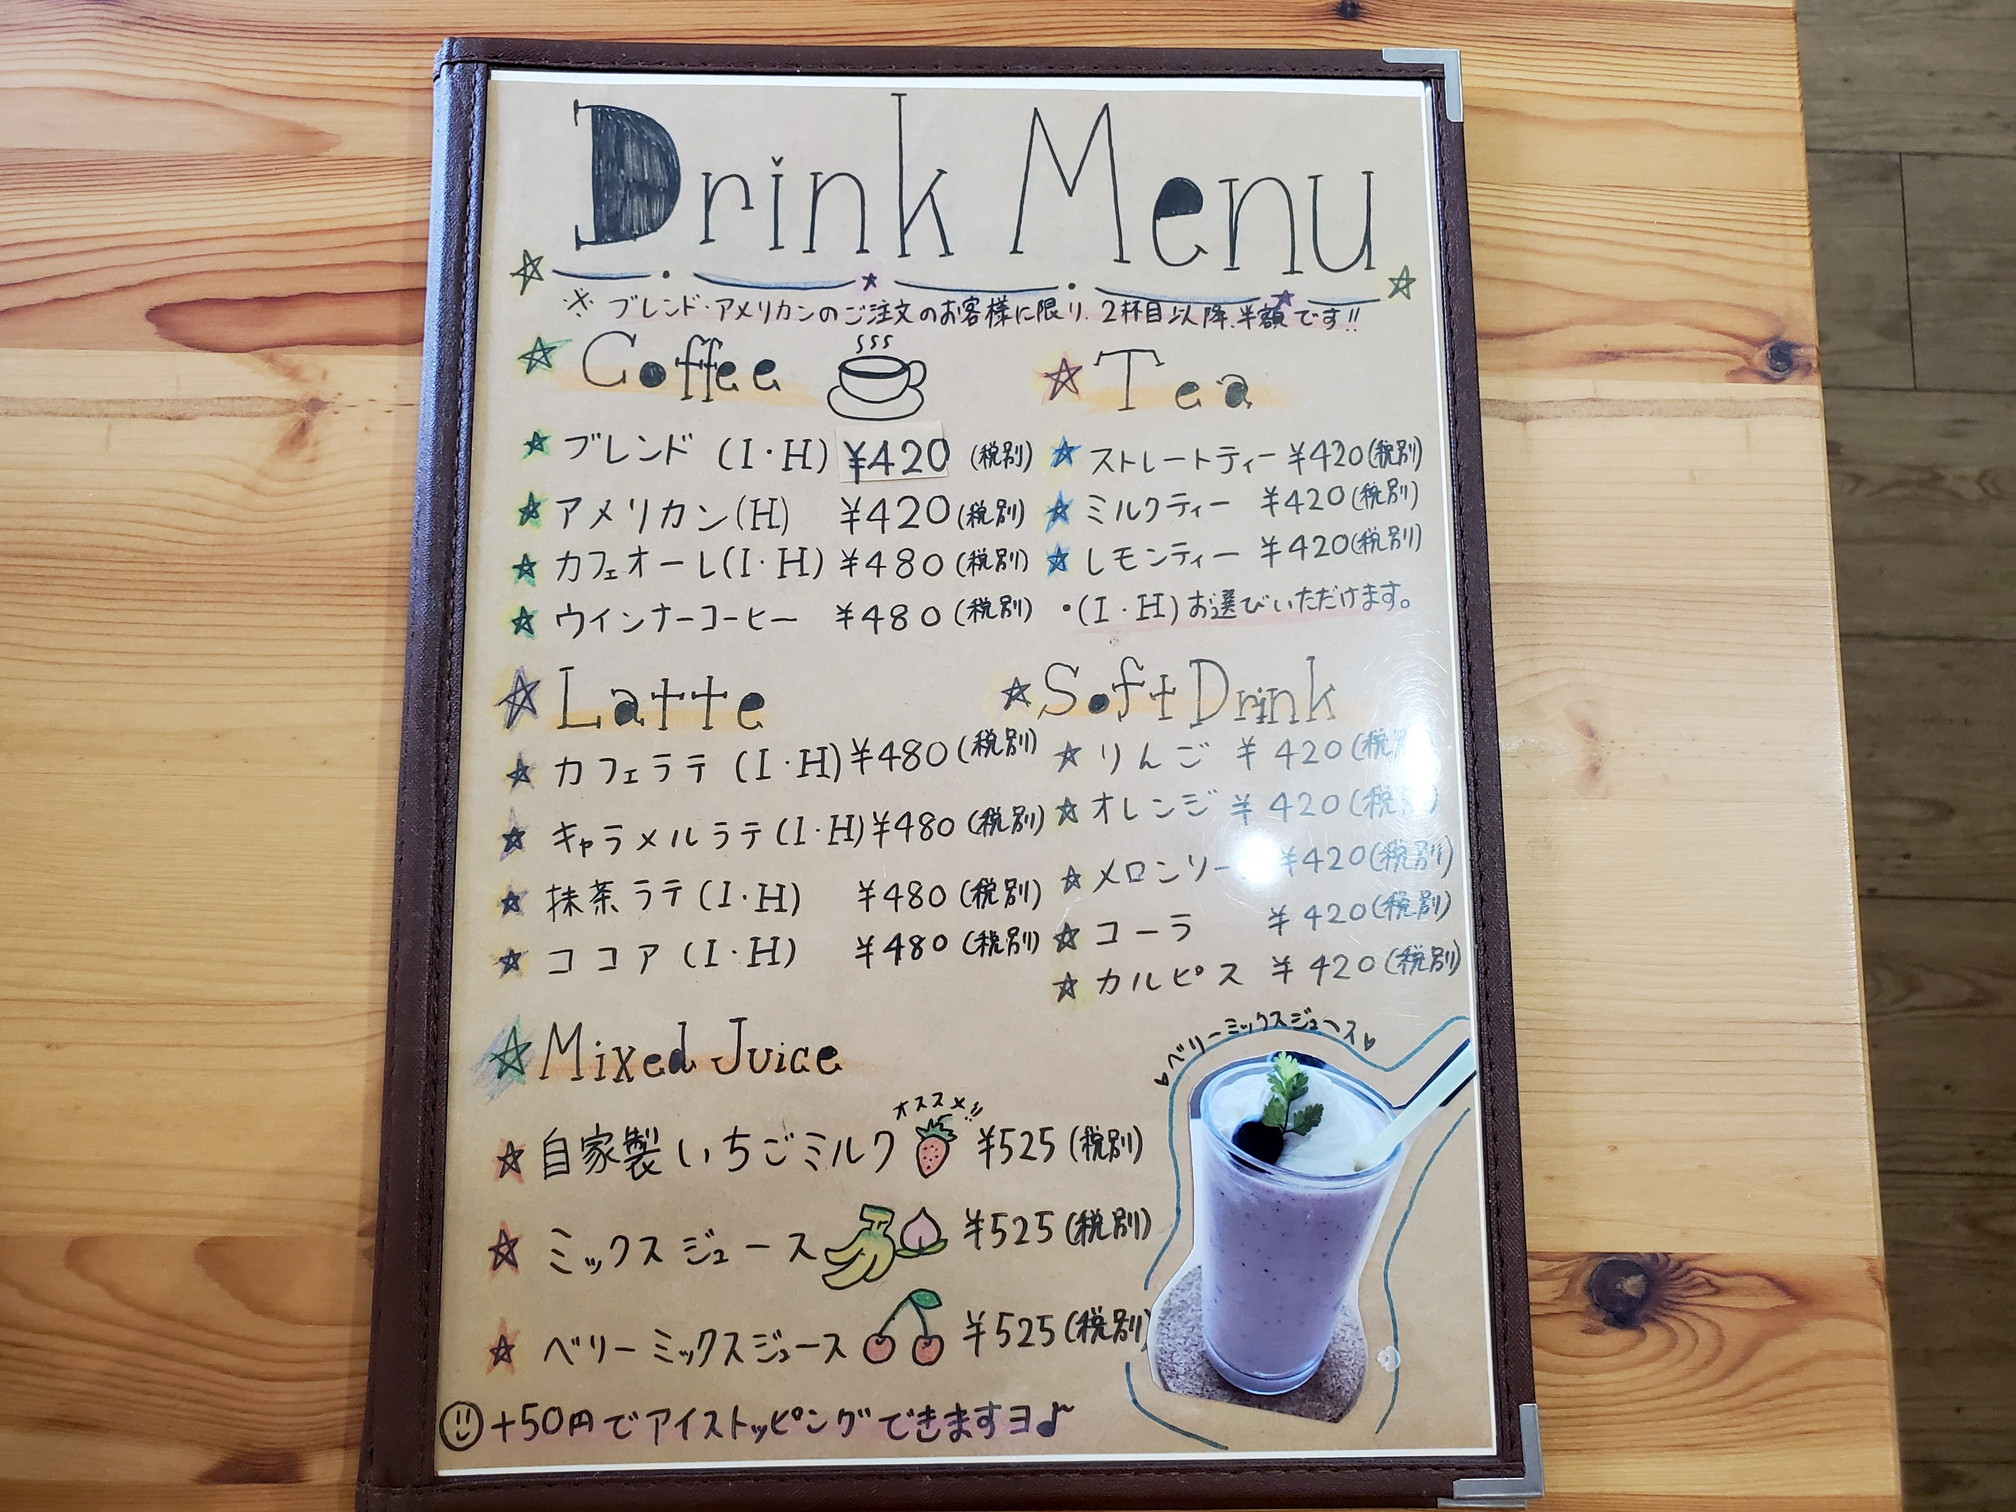 Drink Menu
※ ブレンド・アメリカンのご注文のお客様に限り、2杯目以降、半額です!!
Coffee
ブレンド (I・H) ¥420 (税別)
アメリカン(H) ¥420(税別)
カフェオーレ(I・H) ¥480(税別)
ウインナーコーヒー ¥480(税別)
Tea
ストレートティー ¥420(税別)
ミルクティー ¥420(税別)
レモンティー ¥420(税別)
・(I・H)お選びいただけます。
Latte
カフェラテ (I・H) ¥480(税別)
キャラメルラテ(I・H) ¥480(税別)
抹茶ラテ(I・H) ¥480(税別)
ココア(I・H) ¥480(税別)
Soft Drink
りんご ¥420(税
オレンジ ¥420(税
メロンソー ¥420(税別)
コーラ ¥420(税別)
カルピス ¥420(税別)
Mixed Juice
オススメ!!
自家製いちごミルク ¥525(税別)
ミックスジュース ¥525(税別)
ベリーミックスジュース ¥525(税別)
ベリーミックスジュース
+50円でアイストッピングできますヨ♪